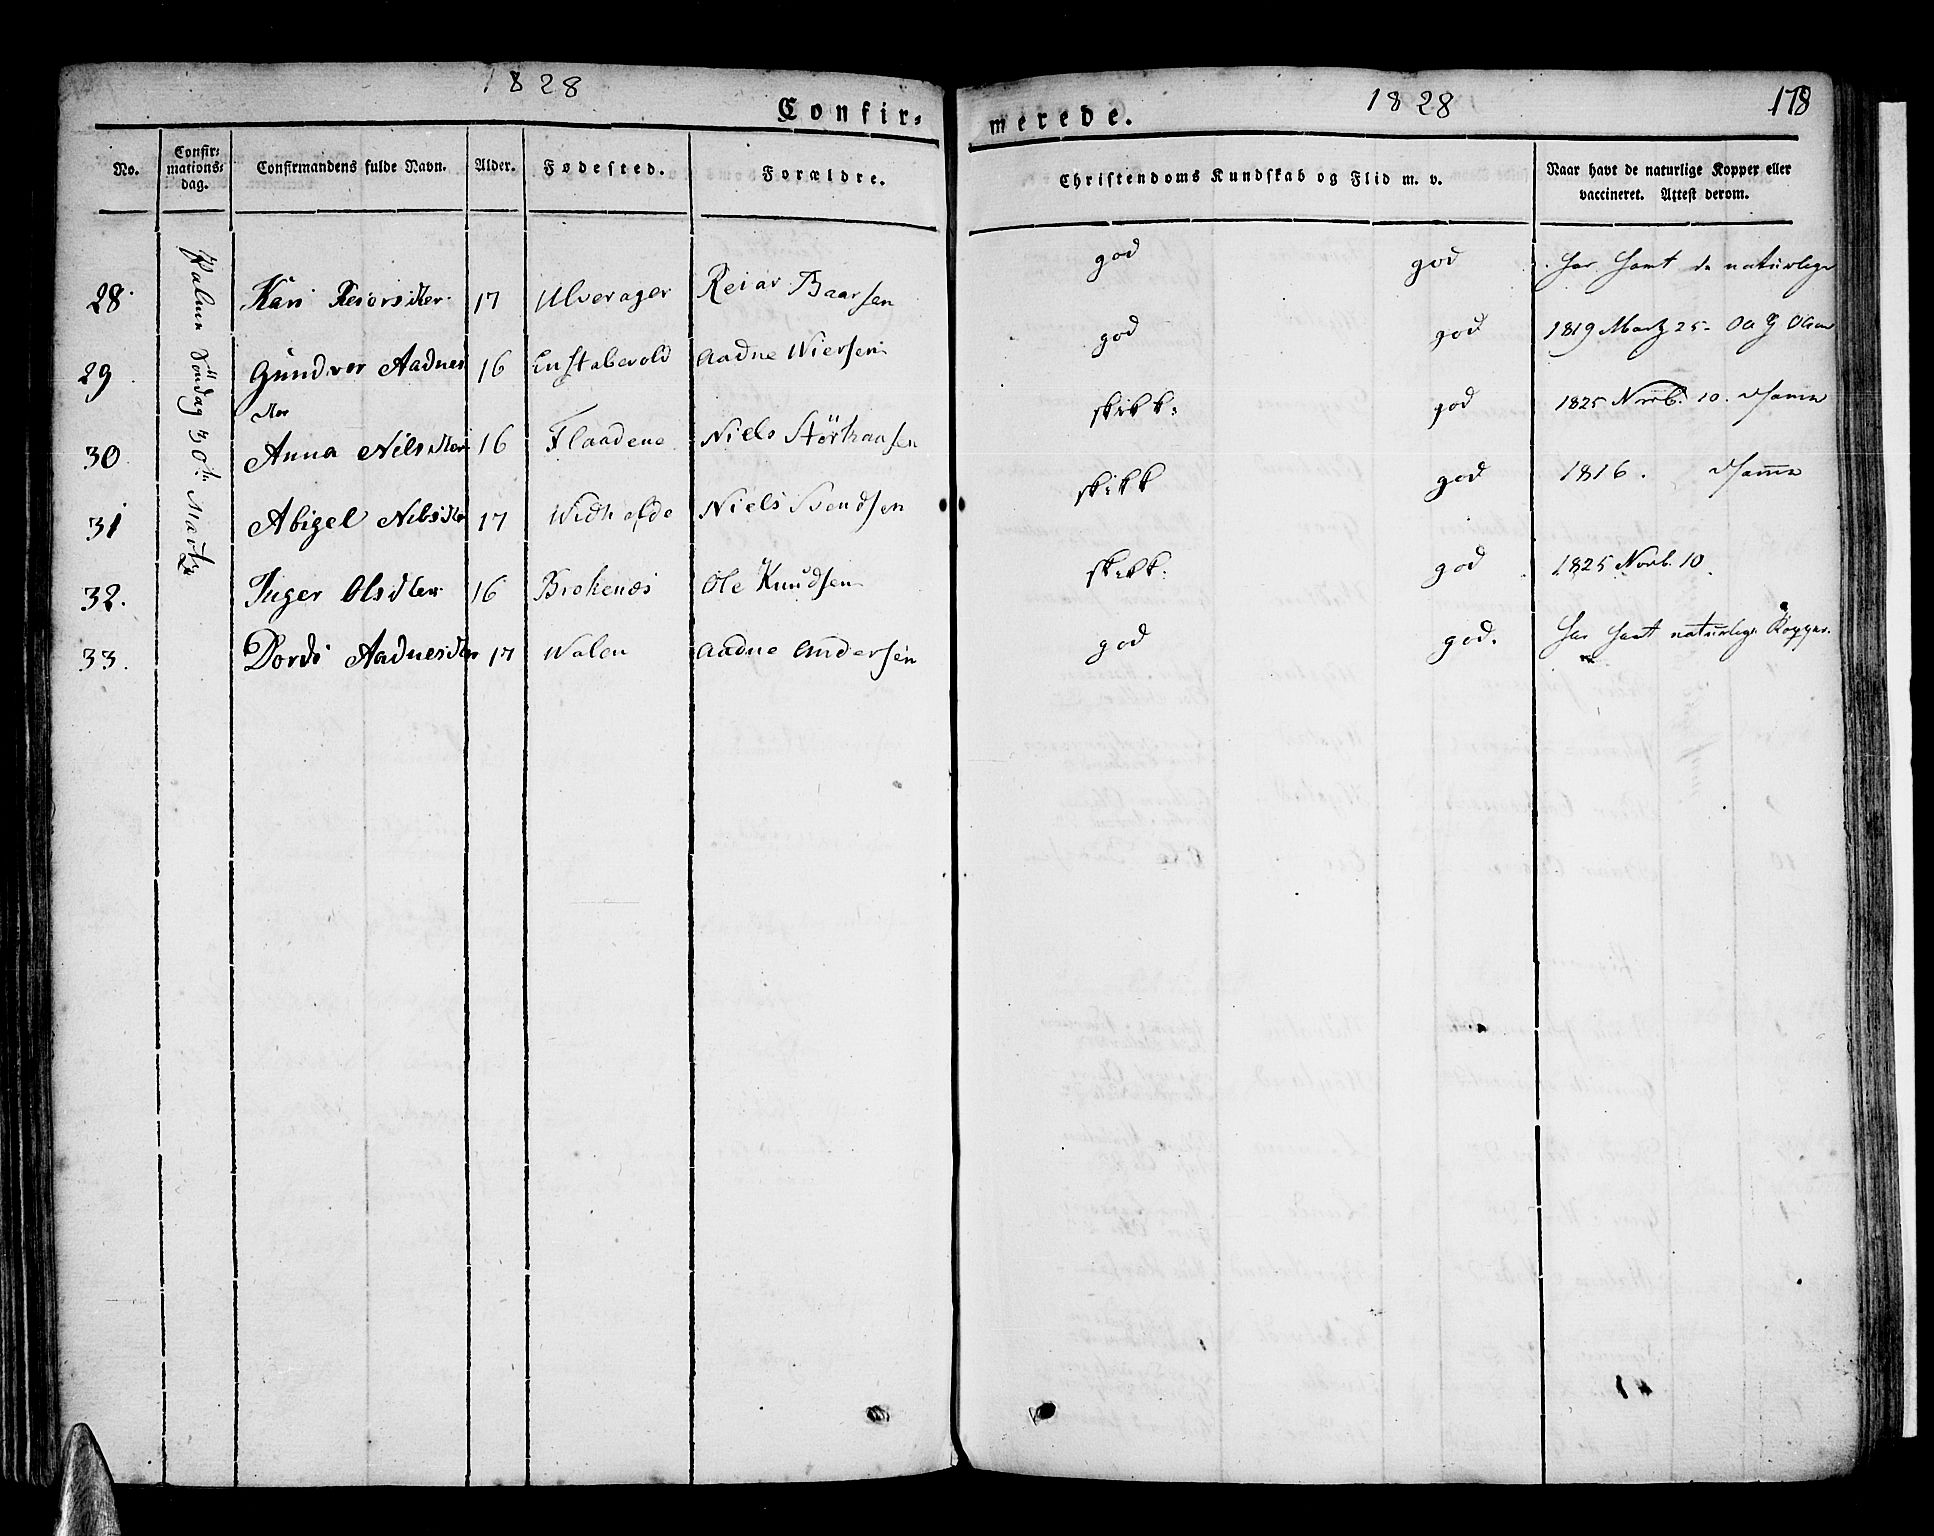 1828
1828
178
Confir-
merede.
No.
Confir-
mations-
dag.
Confirmandens fulde Navn.
Alder.
Fødested.
Forældre.
Christendoms Kundskab og Flid m. v.
Naar havt de naturlige Kopper eller
vaccineret. Attest derom.
Palme Söndag 30te Martz
28. Kari Reiorsdtter 17 Ulverager Reiar Baarsen god god har havt de naturlige
29. Gundvor Aadnes 16 Aadne Wiersen god god 1819 Martz 25 Olsen
dtter
30. Anna Nilsdtter 16 Flaadene Niels skikk: god 1825 Novb. 10.
31 Abigel Nilsdtter 17 Niels Svendsen skikk god 1816.
32. Inger Olsdtter 16 Brekenæs Ole Knudsen skikk: god 1825 Novb. 10
33. Dordi Aadnesdtter 17 Walen Aadne Andersen god god. har havt naturlige Kopper.